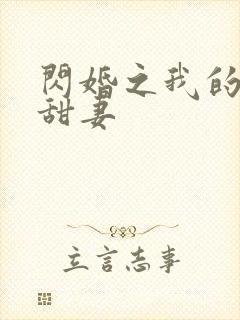 閃婚之我的
甜妻
立言志事